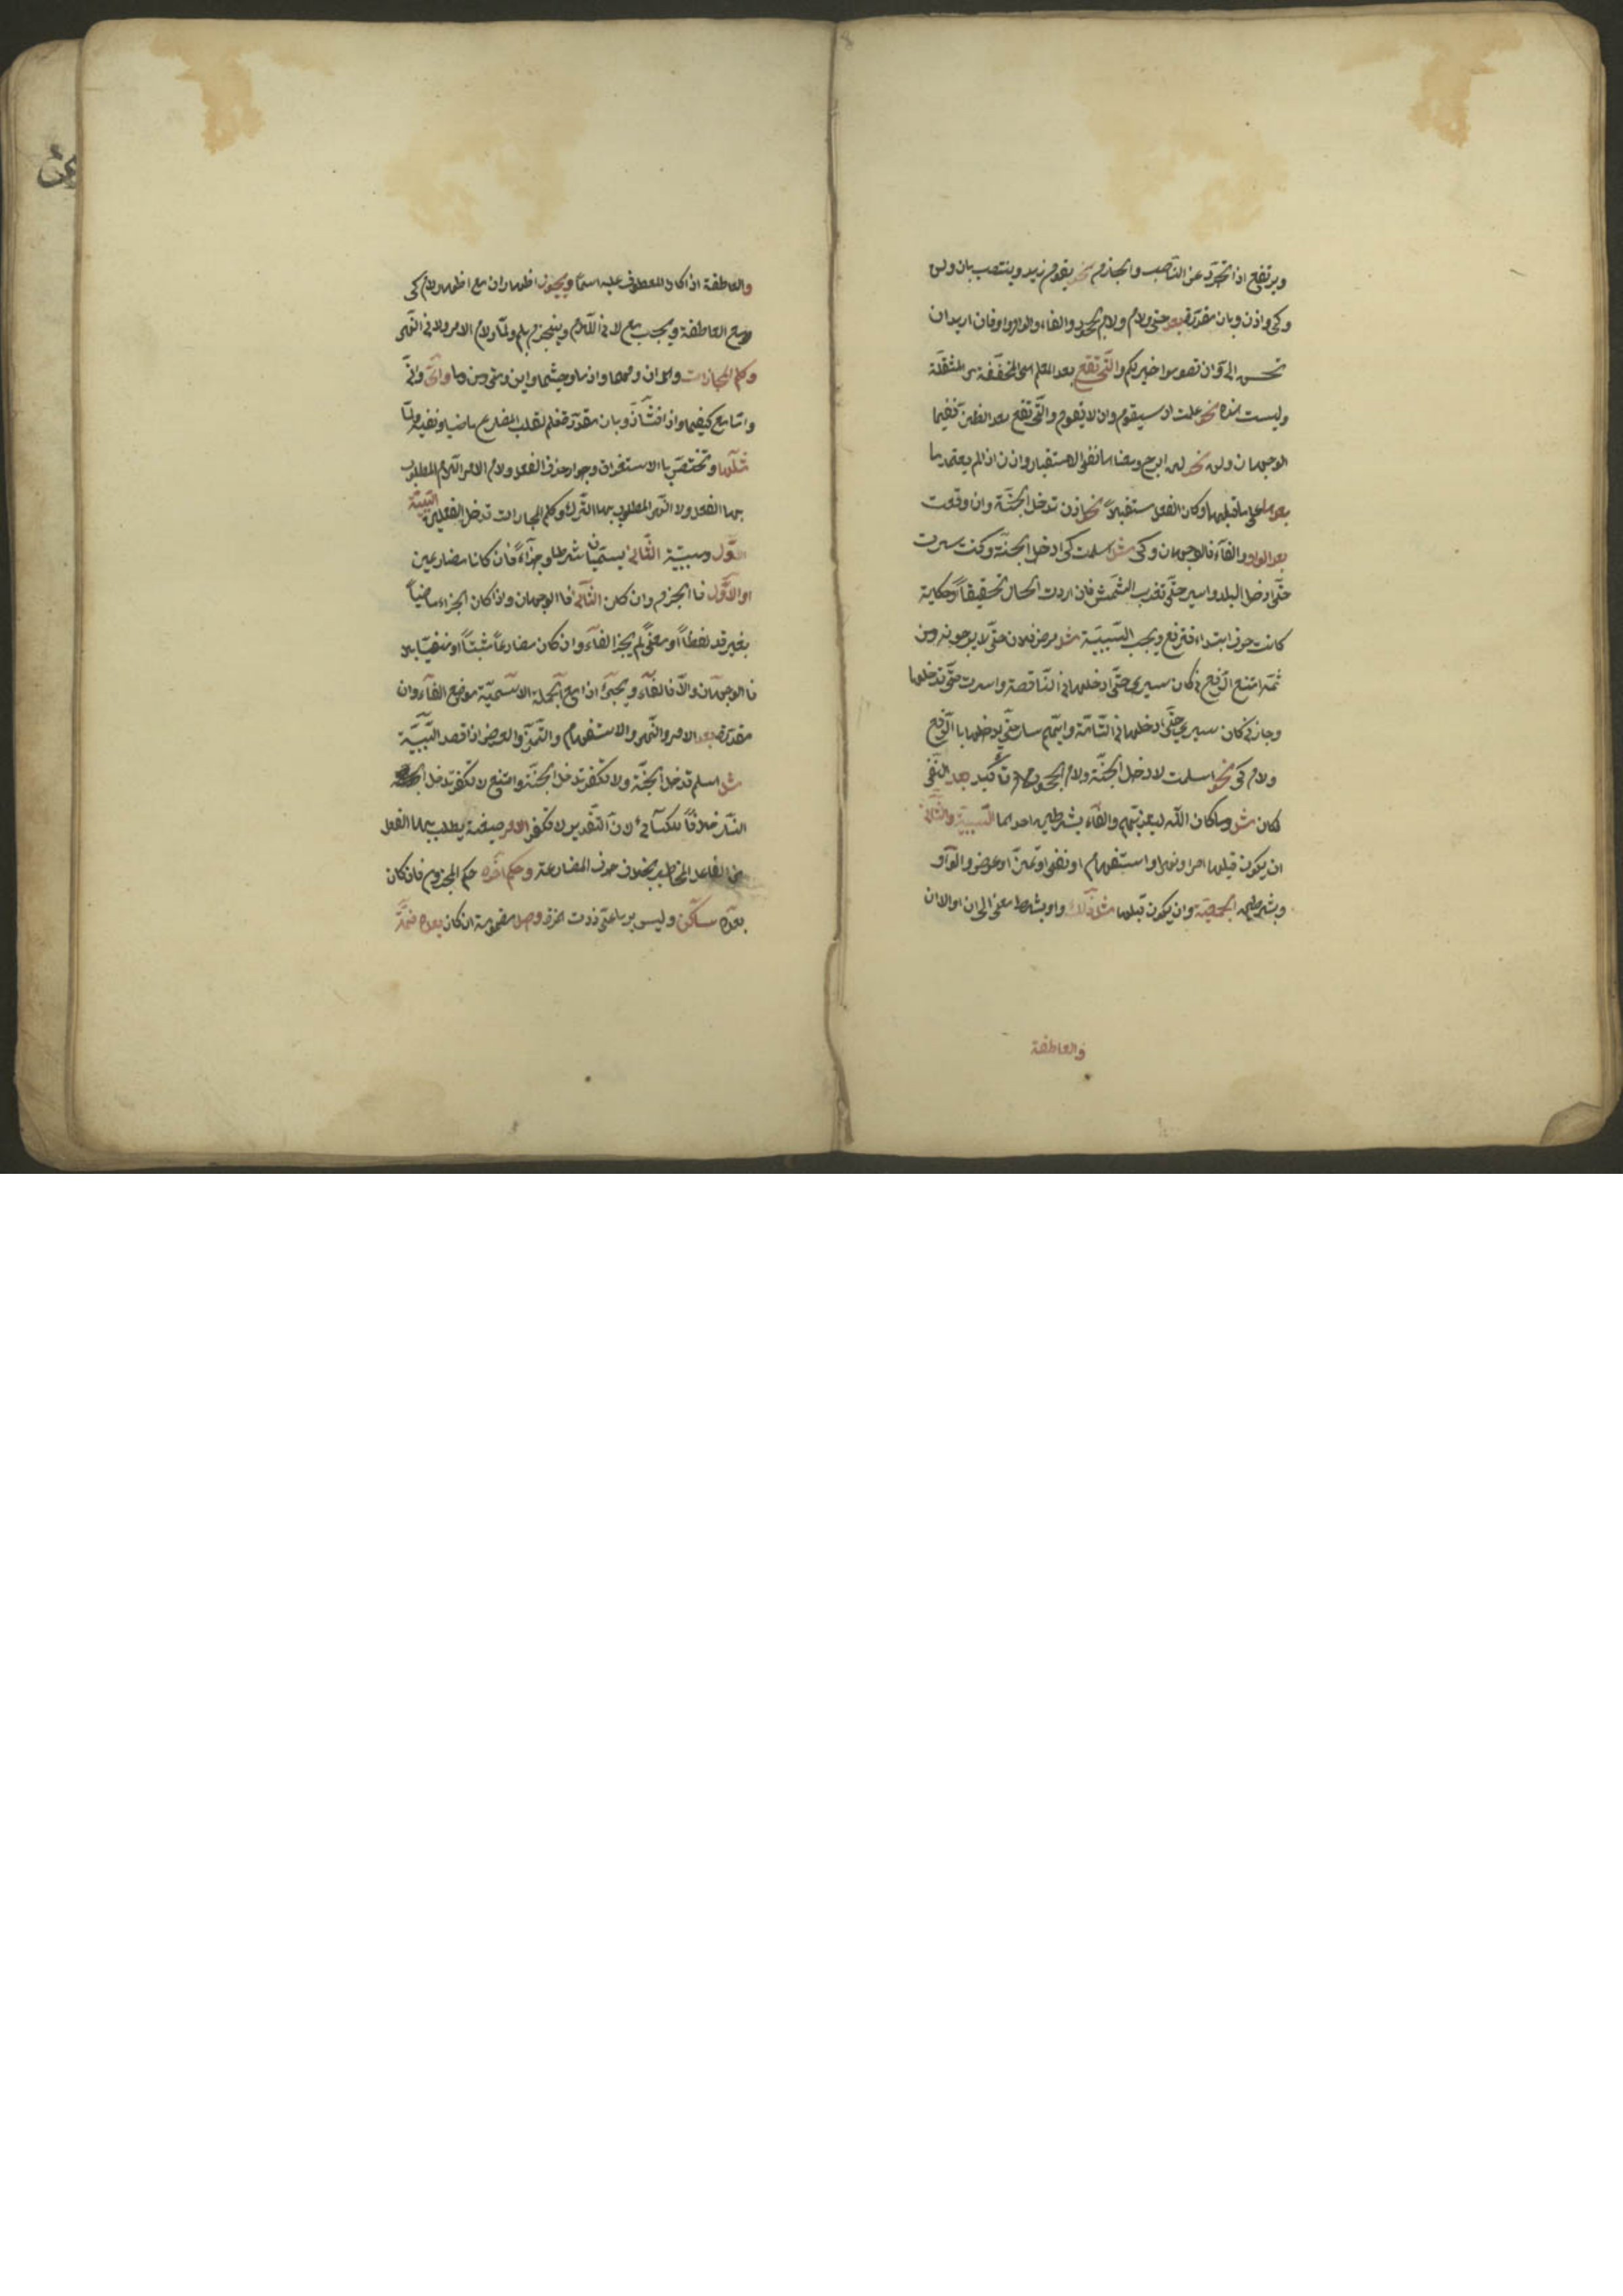 ويرتفع اذا تجرد عن الناصب والجازم نحو يقوم زيد وينتصب بان ولن
وكى واذن وبان مقدرة بعد حتى ولام ولام الجحود والفاء والواو واو فان اريد ان
تحسن الى وان تصوموا خير لكم والتى تقع بعد العلم هى المخففة من المثقلة
وليست هذه نحو علمت ان سيقوم وان لا يقوم والتى تقع بعد الظن ففيها
الوجهان ولن نحو لن ابرح ومعناها نفى الاستقبال واذن اذا لم يعتمد ما
بعدها على ما قبلها وكان الفعل مستقبلاً نحو اذن تدخل الجنة وان وقعت
بعد الواو والفآء فالوجهان وكى مثل اسلمت كى ادخل الجنة وكنت سرت
حتى ادخل البلد واسير حتى تغرب الشمس فان اردت الحال تحقيقاً او حكاية
كانت حرف ابتداء فترفع ويجب السببية مثل مرض فلان حتى لا يرجونه ومن
ثمة امتنع الرفع فى كان سيرى حتى ادخلها فى الناقصة واسرت حتى تدخلها
وجاز فى كان سيرى حتى ادخلها فى التامة وايهم سار حتى يدخلها با الرفع
ولام كى نحو اسلمت لادخل الجنة ولام الجحود لام تأكيد بعد النفى
لكان مثل وما كان الله ليعذبهم والفاء بشرطين احدهما السببية والثانى
ان يكون قبلها امر او نهى او استفهام او نفى او تمن او عرض والواو
وبشرطين الجمعية وان يكون قبلها مثل ذلك واو بشرط معنى الى ان او الا ان
والعاطفة
والعاطفة اذا كان المعطوف عليه اسماً ويجوز اظهار ان مع اظهار لام كى
ومع العاطفة ويجب مع لا فى اللام وينجزم بلم ولما ولام الامر ولا فى النهى
وكلم المجازات وهو ان ومهما واذما وحيثما واين ومتى ومن وما واى وانى
واما مع كيفما واذا فشاذ وبان مقدرة فلم لقلب المضارع ماضيا ونفيه ولما
مثلها وتختص با الاستغراق وجواز حذف الفعل ولام الامر اللام المطلوب
بها الفعل ولا النهى المطلوب بها الترك وكلم المجازات تدخل الفعلين السببية
الاول ومسببية الثانى يسميان شرطا وجزآءً فان كانا مضارعين
او الاول فا الجزم وان كان الثانى فا الوجهان واذا كان الجزاء ماضياً
بغير قد لفظاً او معنى لم يجز الفآء وان كان مضارعاً مثبتاً او منفياً بلا
فا الوجهان والا فالفآء ويجئ اذا مع الجملة الاسمية موضع الفآء وان
مقدرة بعد الامر والنهى والاستفهام والتمنى والعرض اذا قصد السببية
مثل اسلم تدخل الجنة ولا تكفر تدخل الجنة وامتنع لا تكفر تدخل
النار خلافاً للكسآئى لان التقدير لا تكفر الامر صيغة يطلب بها الفعل
من الفاعل المخاطب بحذف حرف المضارعة وحكم آخره حكم المجزوم فان كان
بعده ساكن وليس برباعى زدت همزة وصل مضمومة ان كان بعده ضمة